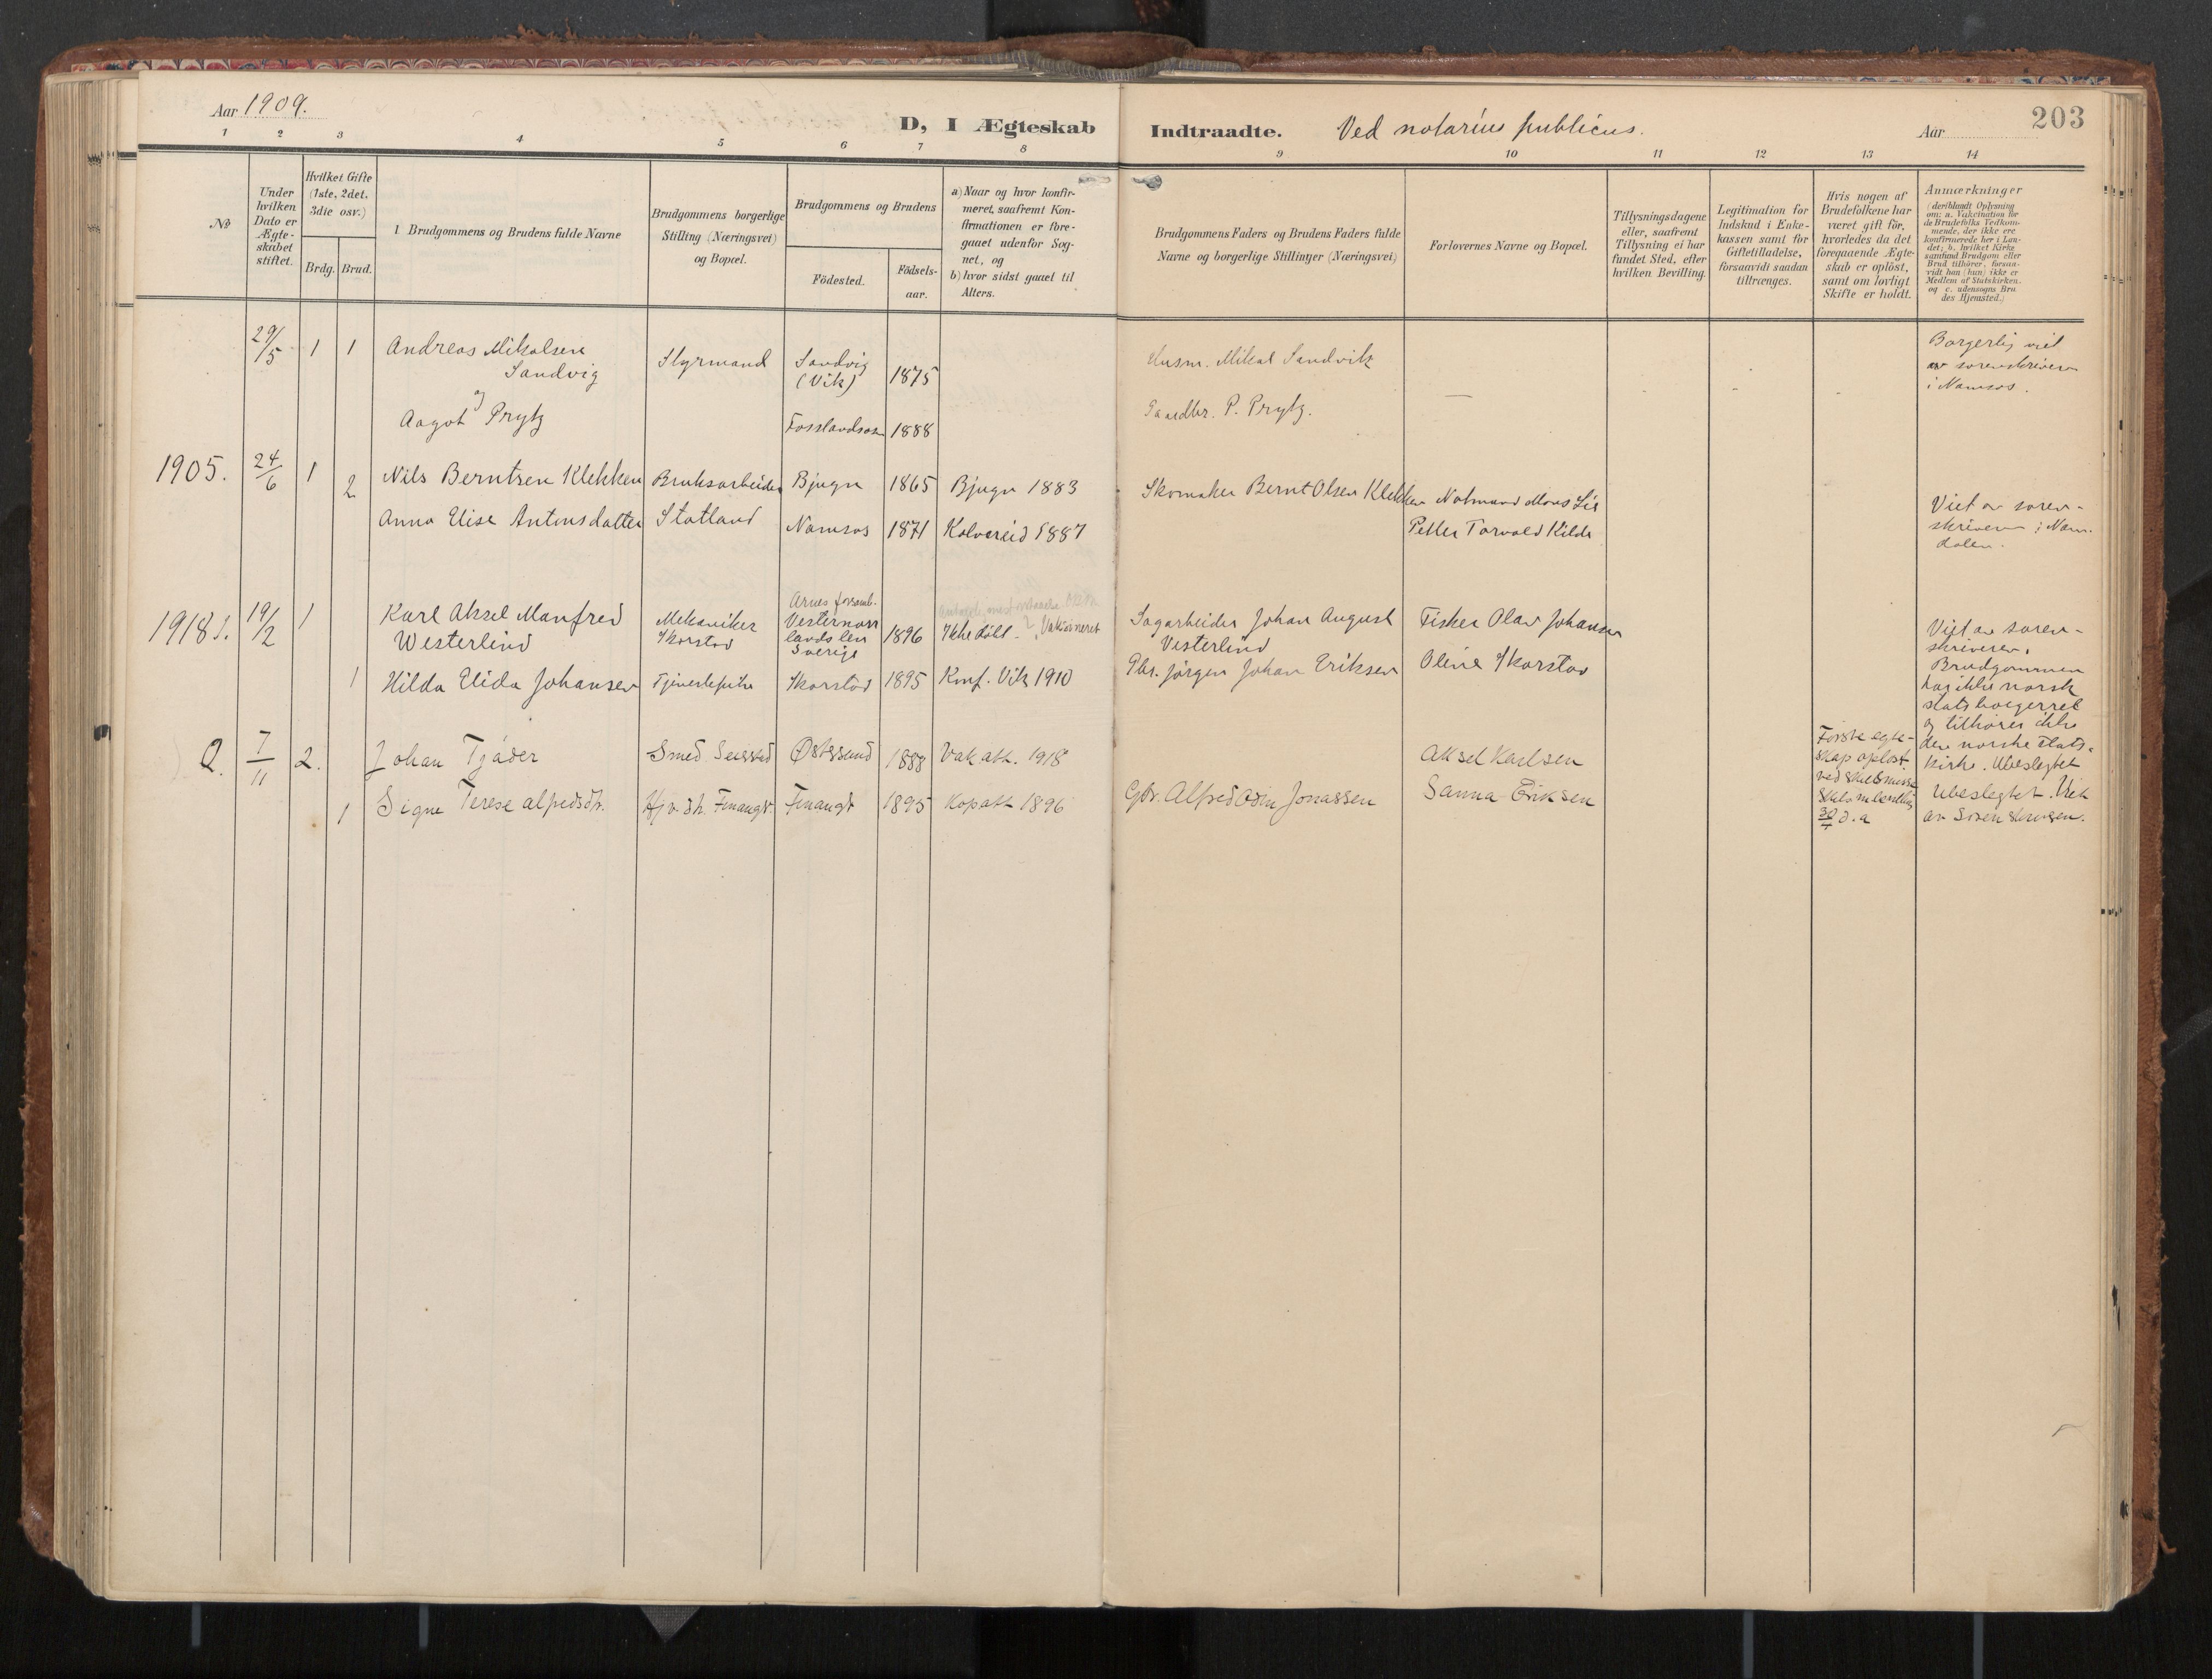 Aar 1909.
D, I Ægteskab
Indtraadte. Ved notarius publicus.
Aar
203
1 2 3 4 5 6 7 8
9 10 11 12 13 14
№
Under hvilken Dato er Ægte-skabet stiftet.
Hvilket Gifte (1ste, 2det, 3die osv.)
Brdg. Brud.
Brudgommens og Brudens fulde Navne
Brudgommens borgerlige Stilling (Næringsvei) og Bopæl.
Brudgommens og Brudens
Födested.
Födsels-aar.
a) Naar og hvor konfir-
meret, saafremt Kon-
firmationen er fore-
gaaet udenfor Sog-
net, og
b) hvor sidst gaaet til
Alters.
Brudgommens Faders og Brudens Faders fulde
Navne og borgerlige Stillinger (Næringsvei)
Forlovernes Navne og Bopæl.
Tillysningsdagene
eller, saafremt
Tillysning ei har
fundet Sted, efter
hvilken Bevilling.
Legitimation for
Indskud i Enke-
kassen samt for
Giftetilladelse,
forsaavidt saadan
tiltrænges.
Hvis nogen af
Brudefolkene har
været gift för,
hvorledes da det
foregaaende Ægte-
skab er oplöst,
samt om lovligt
Skifte er holdt.
Anmærkninger
(deriblandt Oplysning
om: a. Vakcination for
de Brudefolks Vedkom-
mende, der ikke ere
konfirmerede her i Lan-
det; b. hvilket Kirke
samfund Brudgom eller
Brud tilhörer, forsaa-
vidt han (hun) ikke er
Medlem af Statskirken.
og c. udensogns Bru
des Hjemsted.)
29/5 1 1 Andreas Mikalsen
Sandvig
Styrmand
Sandvig
(Vik) 1875
Husm. Mikal Sandvik
Borgerlig viet
av sorenskriveren
i Namsos.
og
Aagot Prytz
Fosslandsosen 1888
Gaardbr. P. Prytz.
1905. 24/6 1 2 Nils Berntsen Klekken
Bruksarbeider
Bjugn 1865 Bjugn 1883
Skomaker Bernt Olsen Klekken
Notmand Mons Lie
Viet av soren-
skriveren i Nam-
dalen.
Anna Elise Antonsdatter
Statland
Namsos 1871 Kolvereid 1887
Petter Torvald Kilde
1918 1. 19/2 1 Karl Aksel Manfred
Westerlind
Mekaniker
Skorstad
Arnes forsaml.
Vesternorr
lands len
Sverige
1896 Ikke döbt. Vaksineret
Sagarbeider Johan August
Vesterlind
Fisker Olav Johansen
Viet av soren-
skriveren.
Brudgommen
har ikke norsk
statsborgerret
og tilhörer ikke
den norske stats-
kirke. Ubeslegtet
1 Hilda Elida Johansen
Tjenestepike
Skorstad 1895 Konf. Vik 1910
Gbr. Jörgen Johan Eriksen
Oline Skorstad
2. 7/11 2. Johan Tjäder
Smed Seierstad
Østersund 1888 Vak att. 1918
Aksel Karlsen
Förste egte-
skap oplöst
ved skilsmisse
30/7 d.a
Ubeslegtet. Viet
av Sorenskriveren.
1 Signe Terese Alfredsdtr.
Hjv. dtr. Finangr.
Finangr 1895 Kop att 1896
Gbr. Alfred Odin Jonassen
Sanna Eriksen